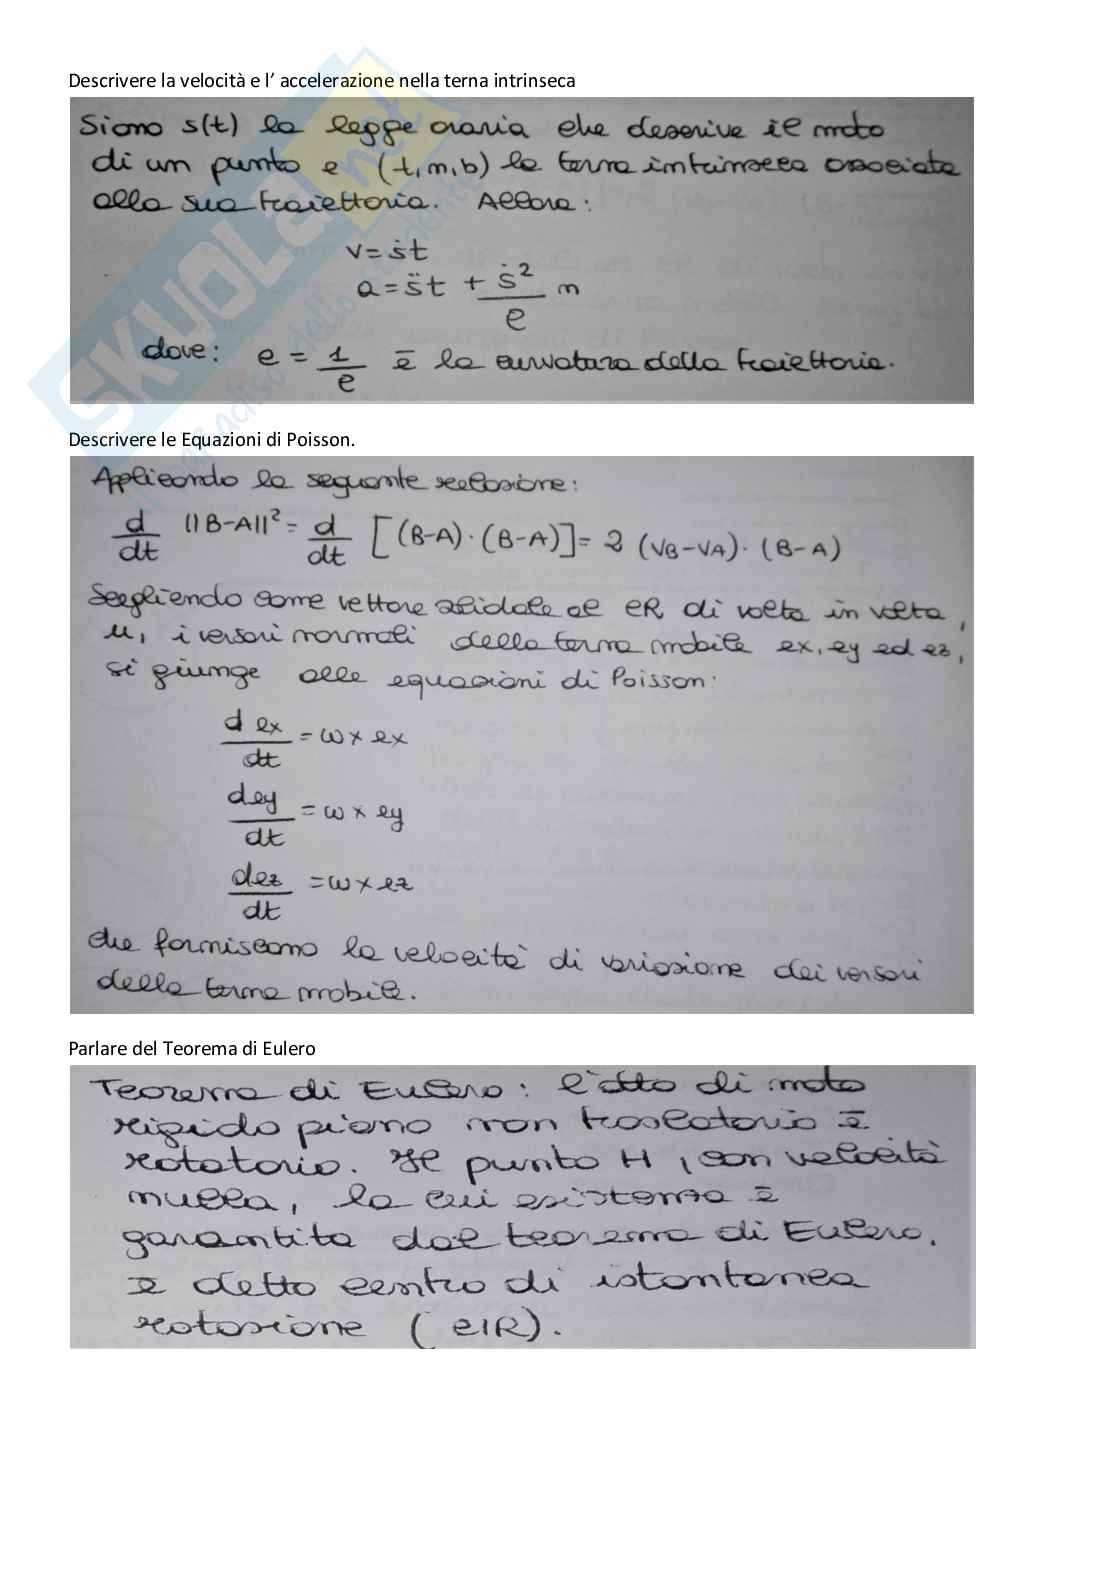 Descrivere la velocità e l' accelerazione nella terna intrinseca
Siano s(t) la legge oraria che descrive il moto
di un punto e (t, n, b) la terna intrinseca associata
alla sua traiettoria. Allora:
v = ṡt
a = s̈t + ṡ²/ρ n
dove: c = 1/ρ è la curvatura della traiettoria.
Descrivere le Equazioni di Poisson.
Applicando la seguente relazione:
d/dt ||B-A||² = d/dt [(B-A)·(B-A)] = 2 (VB-VA)·(B-A)
Scegliendo come vettore solidale al CR di volta in volta,
i versori normali della terna mobile ex, ey ed ez,
si giunge alle equazioni di Poisson:
d ex/dt = ω × ex
dey/dt = ω × ey
dez/dt = ω × ez
che forniscono la velocità di variazione dei versori
della terna mobile.
Parlare del Teorema di Eulero
Teorema di Eulero: l'atto di moto
rigido piano non traslatorio è
rotatorio. Il punto H, con velocità
nulla, la cui esistenza è
garantita dal teorema di Eulero,
è detto centro di istantanea
rotazione (CIR).
SKUOLA.net
il paradiso dello studente